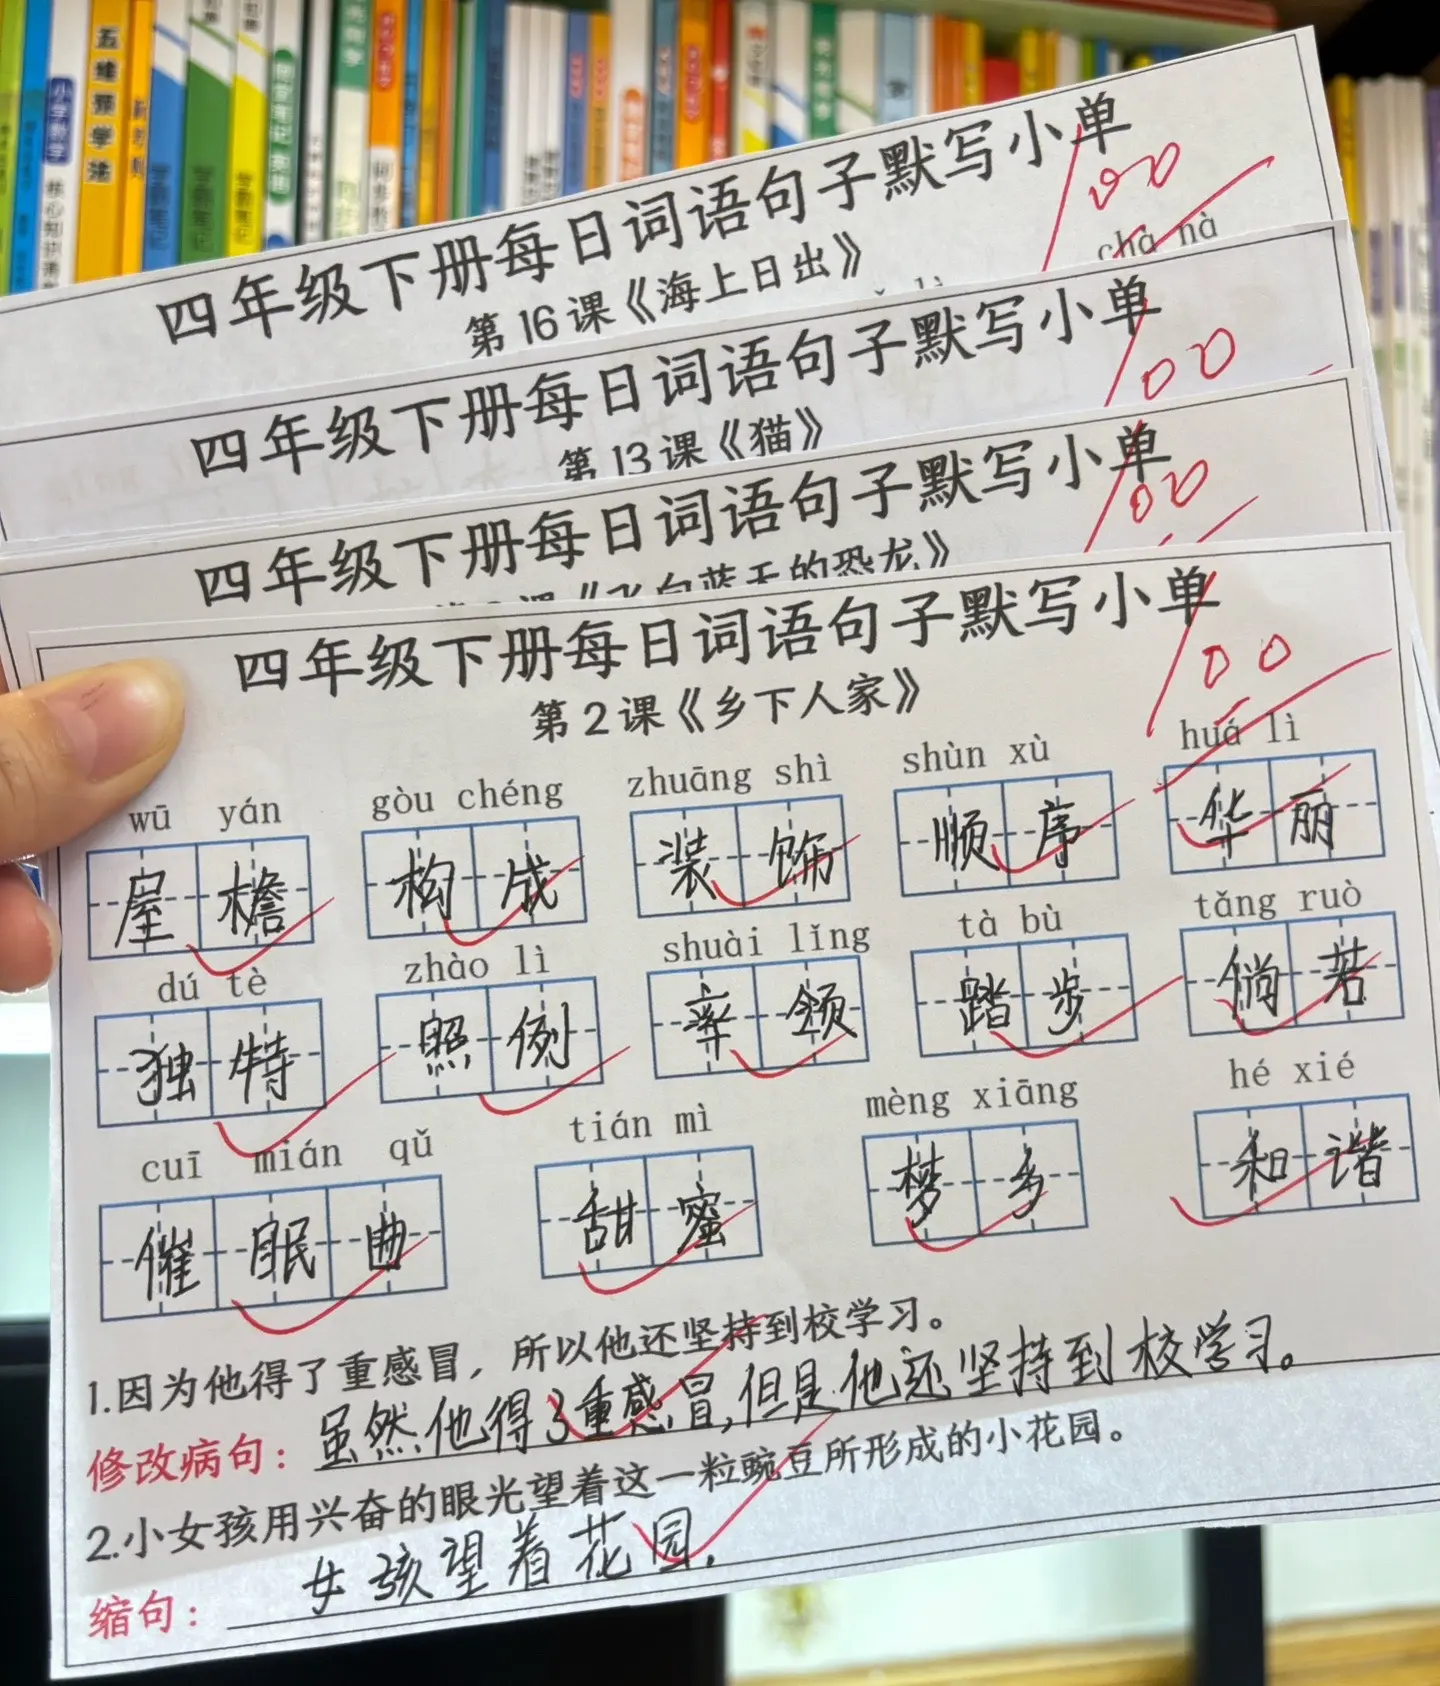 五维预学法
小学数学
核心知识集
学霸笔记
学霸笔记
学霸笔记
四年级下册每日词语句子默写小单
100
第16课《海上日出》
chà nà
四年级下册每日词语句子默写小单
100
第13课《猫》
四年级下册每日词语句子默写小单
100
课《飞向蓝天的恐龙》
四年级下册每日词语句子默写小单
100
第2课《乡下人家》
wū yán gòu chéng zhuāng shì shùn xù huá lì
屋檐 构成 装饰 顺序 华丽
dú tè zhào lì shuài lǐng tà bù tǎng ruò
独特 照例 率领 踏步 倘若
cuī mián qǔ tián mì mèng xiāng hé xié
催眠曲 甜蜜 梦乡 和谐
1.因为他得了重感冒，所以他还坚持到校学习。
修改病句：虽然他得了重感冒,但是他还坚持到校学习。
2.小女孩用兴奋的眼光望着这一粒豌豆所形成的小花园。
缩句：女孩望着花园.